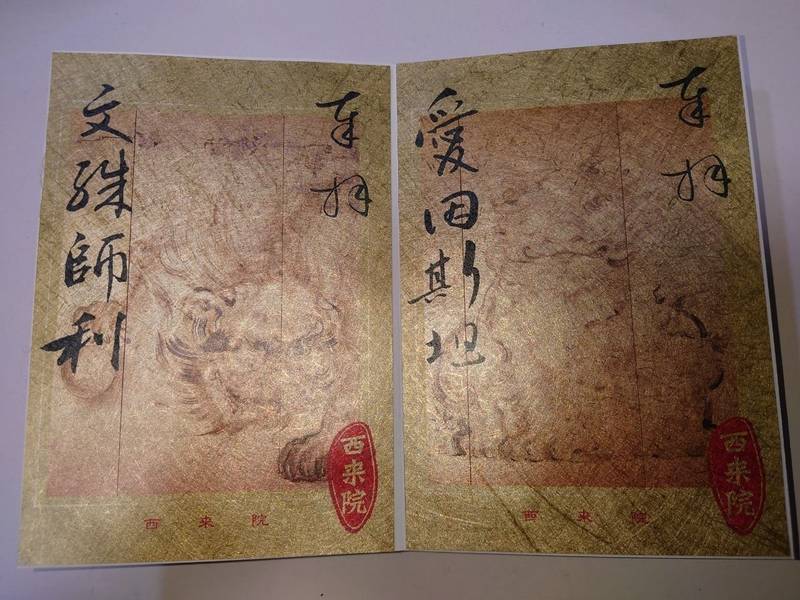 奉拝
愛因斯坦
西来院
西来院
奉拝
文殊師利
西来院
西来院